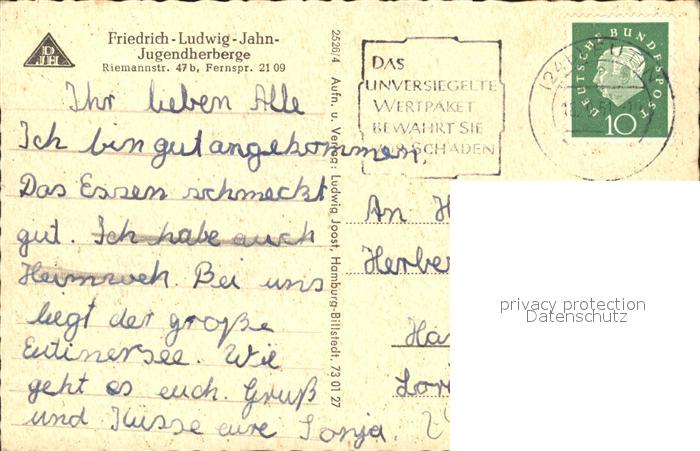 DJH
Friedrich-Ludwig-Jahn-
Jugendherberge
Riemannstr. 47b, Fernspr. 21 09
Ihr lieben Alle
Ich bin gut angekommen,
Das Essen schmeckt
gut. Ich habe auch
Heimweh. Bei uns
liegt der große
Eutinersee. Wie
geht es euch. Gruß
und Küsse eure Sonja.
2526/4 Aufn. u. Verlag: Ludwig Joost, Hamburg-Billstedt. 73 01 27
DAS
UNVERSIEGELTE
WERTPAKET
BEWAHRT SIE
VOR SCHADEN
DEUTSCHE BUNDESPOST
10
An H
Herber
Ha
privacy protection
Datenschutz